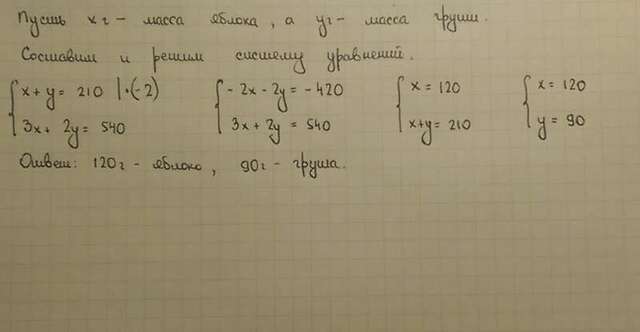 Пусть x г – масса яблока, а y г – масса груши.
Составим и решим систему уравнений.
{ x + y = 210 |·(-2)   { - 2x - 2y = - 420   { x = 120   { x = 120
{ 3x + 2y = 540   { 3x + 2y = 540   { x+y = 210   { y = 90
Ответ: 120 г – яблоко, 90 г – груша.